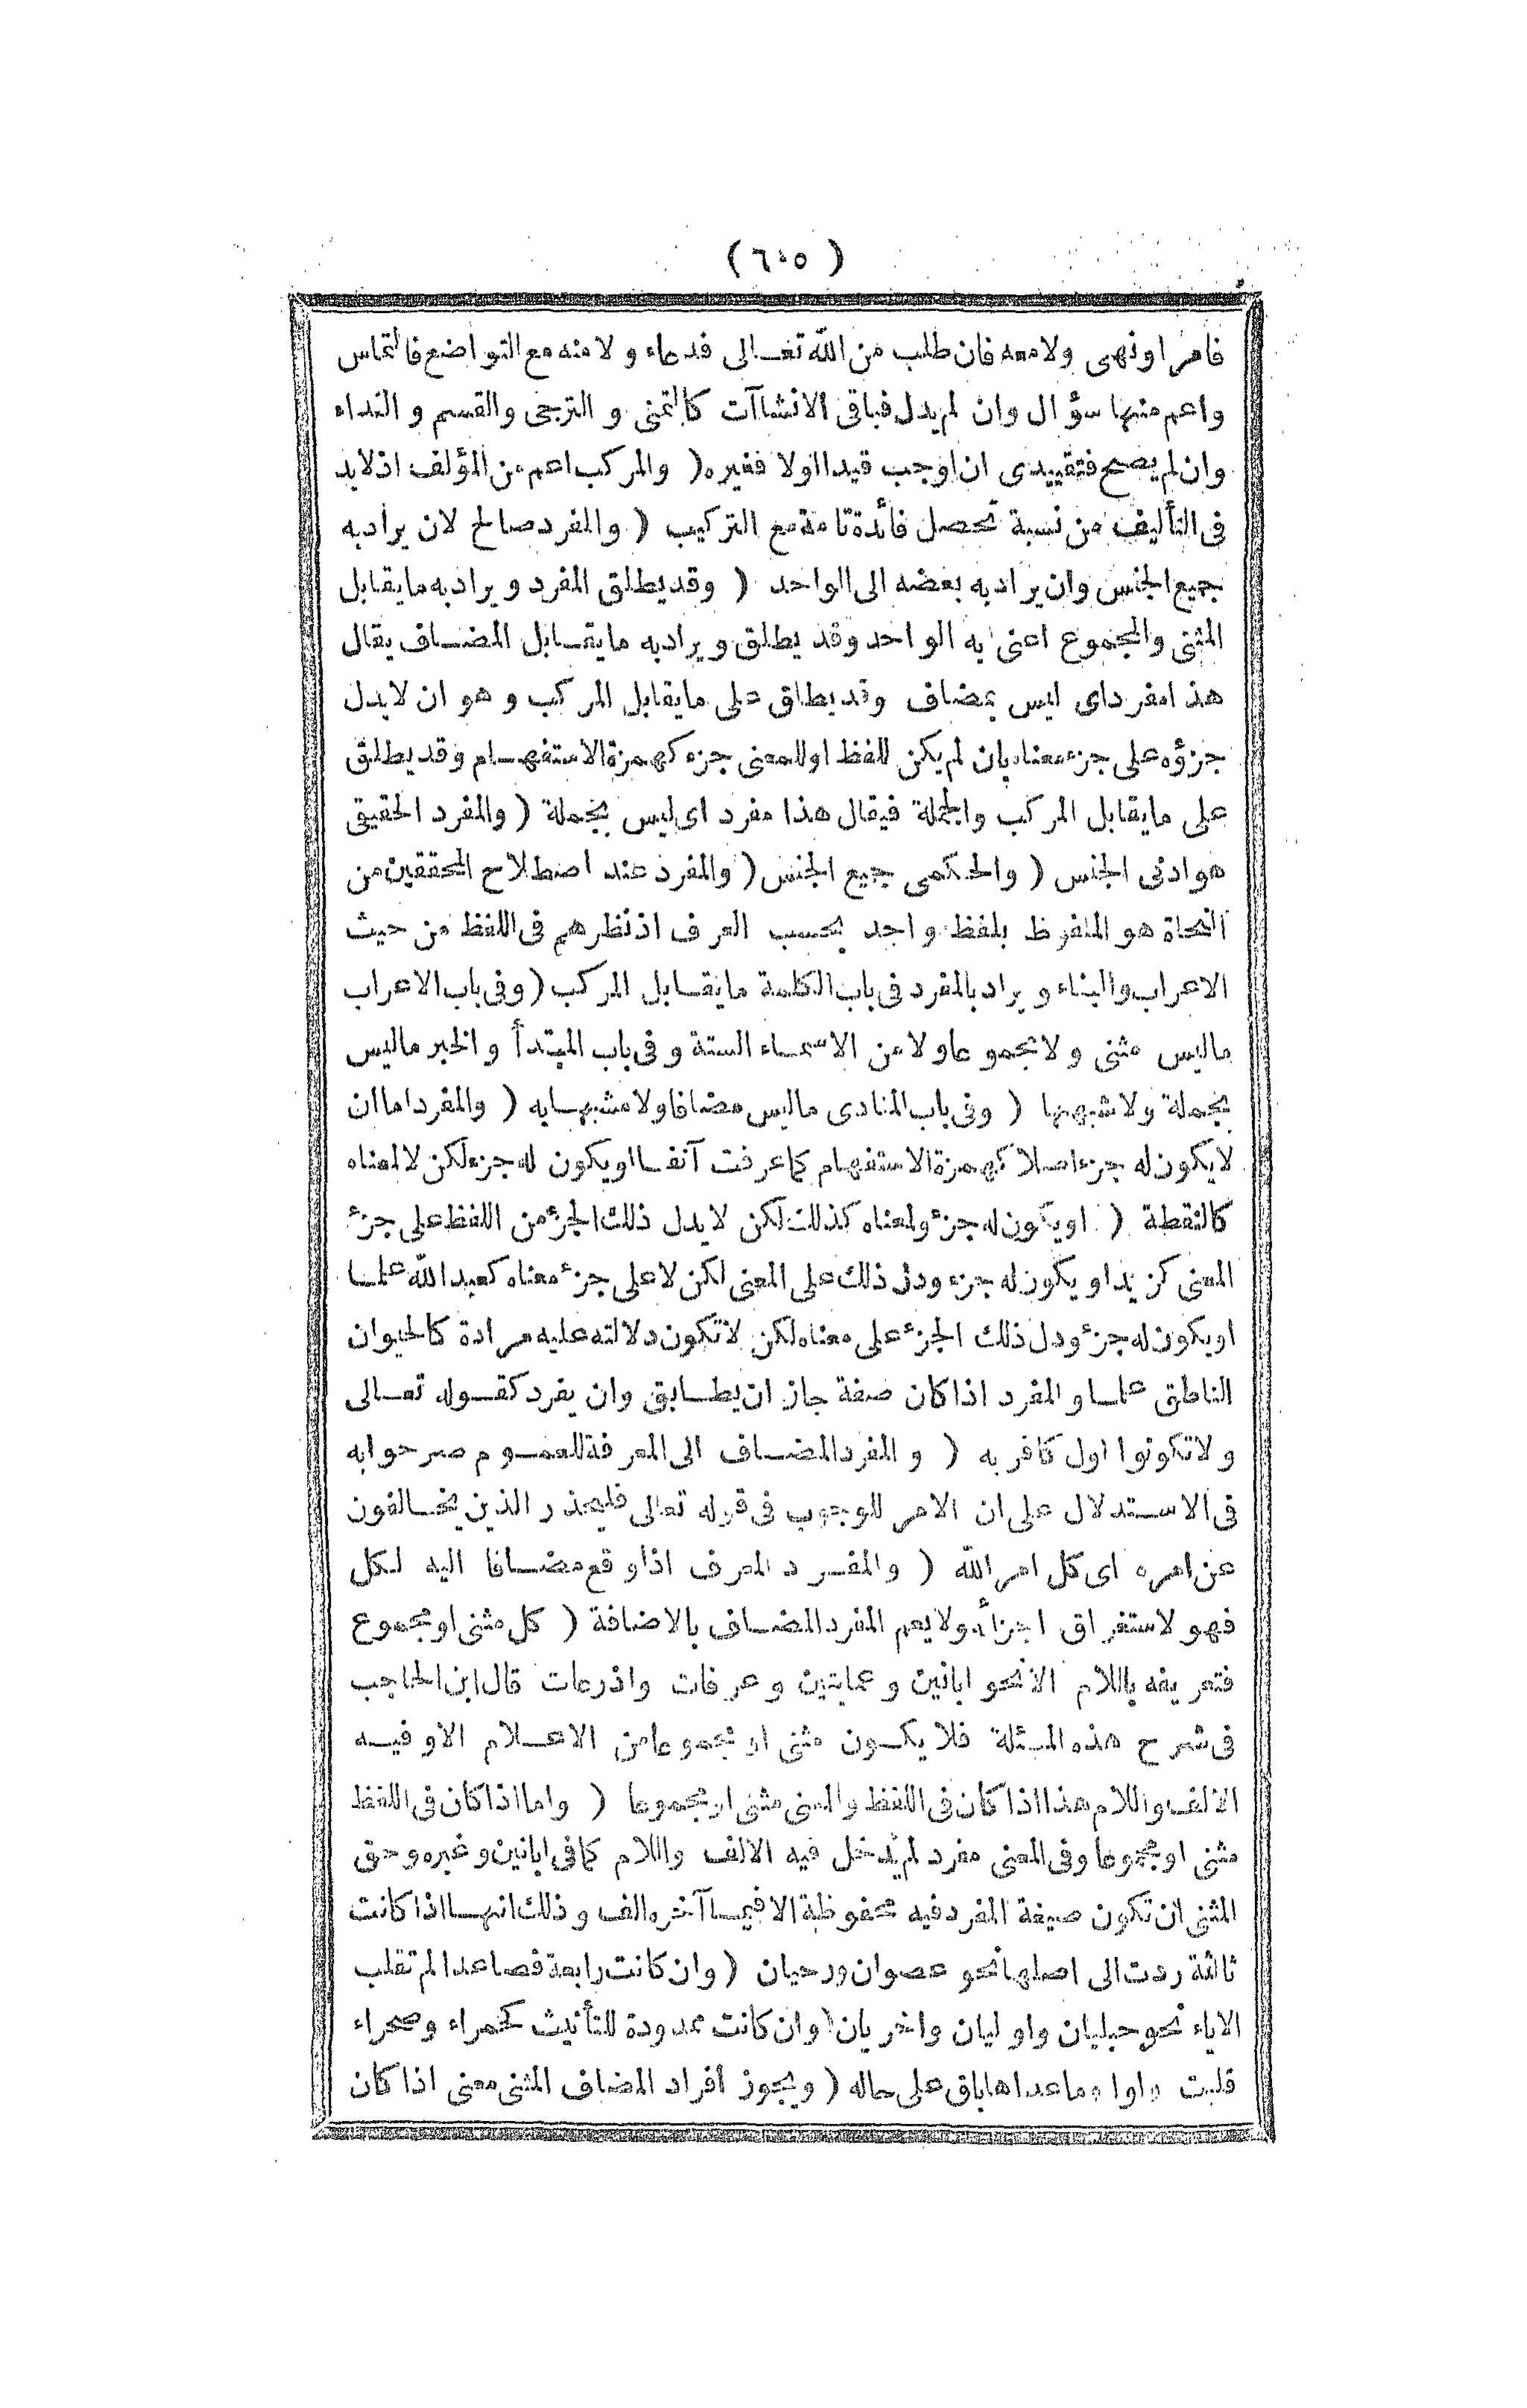 (٦٠٥)
فامر اونهى ولامعه فان طلب من الله تعـالى فدعاء و لامنه مع التواضع فالتماس
واعم منها سؤال وان لم يدل فباقى الانشاآت كالتمنى و الترجى والقسم و النداء
وان لم يصح فتقييدى ان اوجب قيدا اولا فغيره ( والمركب اعم من المؤلف اذلابد
فى التأليف من نسبة تحصل فائدة تامة مع التركيب ( والمفرد صالح لان يرادبه
جميع الجنس وان يرادبه بعضه الى الواحد ( وقديطلق المفرد و يرادبه مايقابل
المثنى والمجموع اعنى به الواحد وقد يطلق و يرادبه مايقـابل المضـاف يقال
هذا مفرد اى ليس بمضاف وقديطلق على مايقابل المركب و هو ان لايدل
جزؤه على جزء معناه بان لم يكن للفظ اوللمعنى جزء كهمزة الاستفهـام وقديطلق
على مايقابل المركب والجملة فيقال هذا مفرد اى ليس بجملة ( والمفرد الحقيقى
هوادنى الجنس ( والحكمى جميع الجنس ( والمفرد عند اصطلاح المحققين من
النحاة هو الملفوظ بلفظ واحد بحسب العرف اذنظرهم فى اللفظ من حيث
الاعراب والبناء و يراد بالمفرد فى باب الكلمة مايقـابل المركب ( وفى باب الاعراب
ماليس مثنى ولا مجموعا ولا من الاسمـاء الستة و فى باب المبتدأ والخبر ماليس
بجملة ولا شبهها ( وفى باب المنادى ماليس مضافا ولا مشبهـابه ( والمفرد اما ان
لايكون له جزء اصلا كهمزة الاستفهام كما عرفت آنفـا اويكون له جزء لكن لا لمعناه
كالنقطة ( اويكون له جزء ولمعناه كذلك لكن لا يدل ذلك الجزء من اللفظ على جزء
المعنى كزيد او يكون له جزء ودل ذلك على المعنى لكن لا على جزء معناه كعبدالله علمـا
اويكون له جزء ودل ذلك الجزء على معناه لكن لاتكون دلالته عليه مرادة كالحيوان
الناطق علمـا و المفرد اذا كان صفة جاز ان يطـابق وان يفرد كقـوله تعـالى
ولاتكونوا اول كافر به ( و المفرد المضـاف الى المعرفة للعمـوم صرحوا به
فى الاستدلال على ان الامر للوجوب فى قوله تعالى فليحذر الذين يخـالفون
عن امره اى كل امر الله ( والمفـرد المعرف اذا وقع مضـافا اليه لكل
فهو لاستغراق اجزأه ولا يعم المفرد المضـاف بالاضافة ( كل مثنى او مجموع
فتعريفه باللام الا نحو ابانين و عمايتين و عرفات واذرعات قال ابن الحاجب
فى شرح هذه المسئلة فلا يكـون مثنى او مجموعا من الاعـلام الا وفيـه
الالف واللام هذا اذا كان فى اللفظ والمعنى مثنى او مجموعا ( واما اذا كان فى اللفظ
مثنى او مجموعا وفى المعنى مفرد لم يدخل فيه الالف واللام كما فى ابانين وغيره وحق
المثنى ان تكون صيغة المفرد فيه محفوظة الا فيمـا آخره الف وذلك انهـا اذا كانت
ثالثة ردت الى اصلها نحو عصوان ورحيان ( وان كانت رابعة فصاعدا لم تقلب
الاياء نحو حبليان واوليان واخريان ( وان كانت ممدودة للتأنيث كحمراء وصحراء
قلبت واوا وماعداها باق على حاله ( ويجوز افراد المضاف المثنى معنى اذا كان